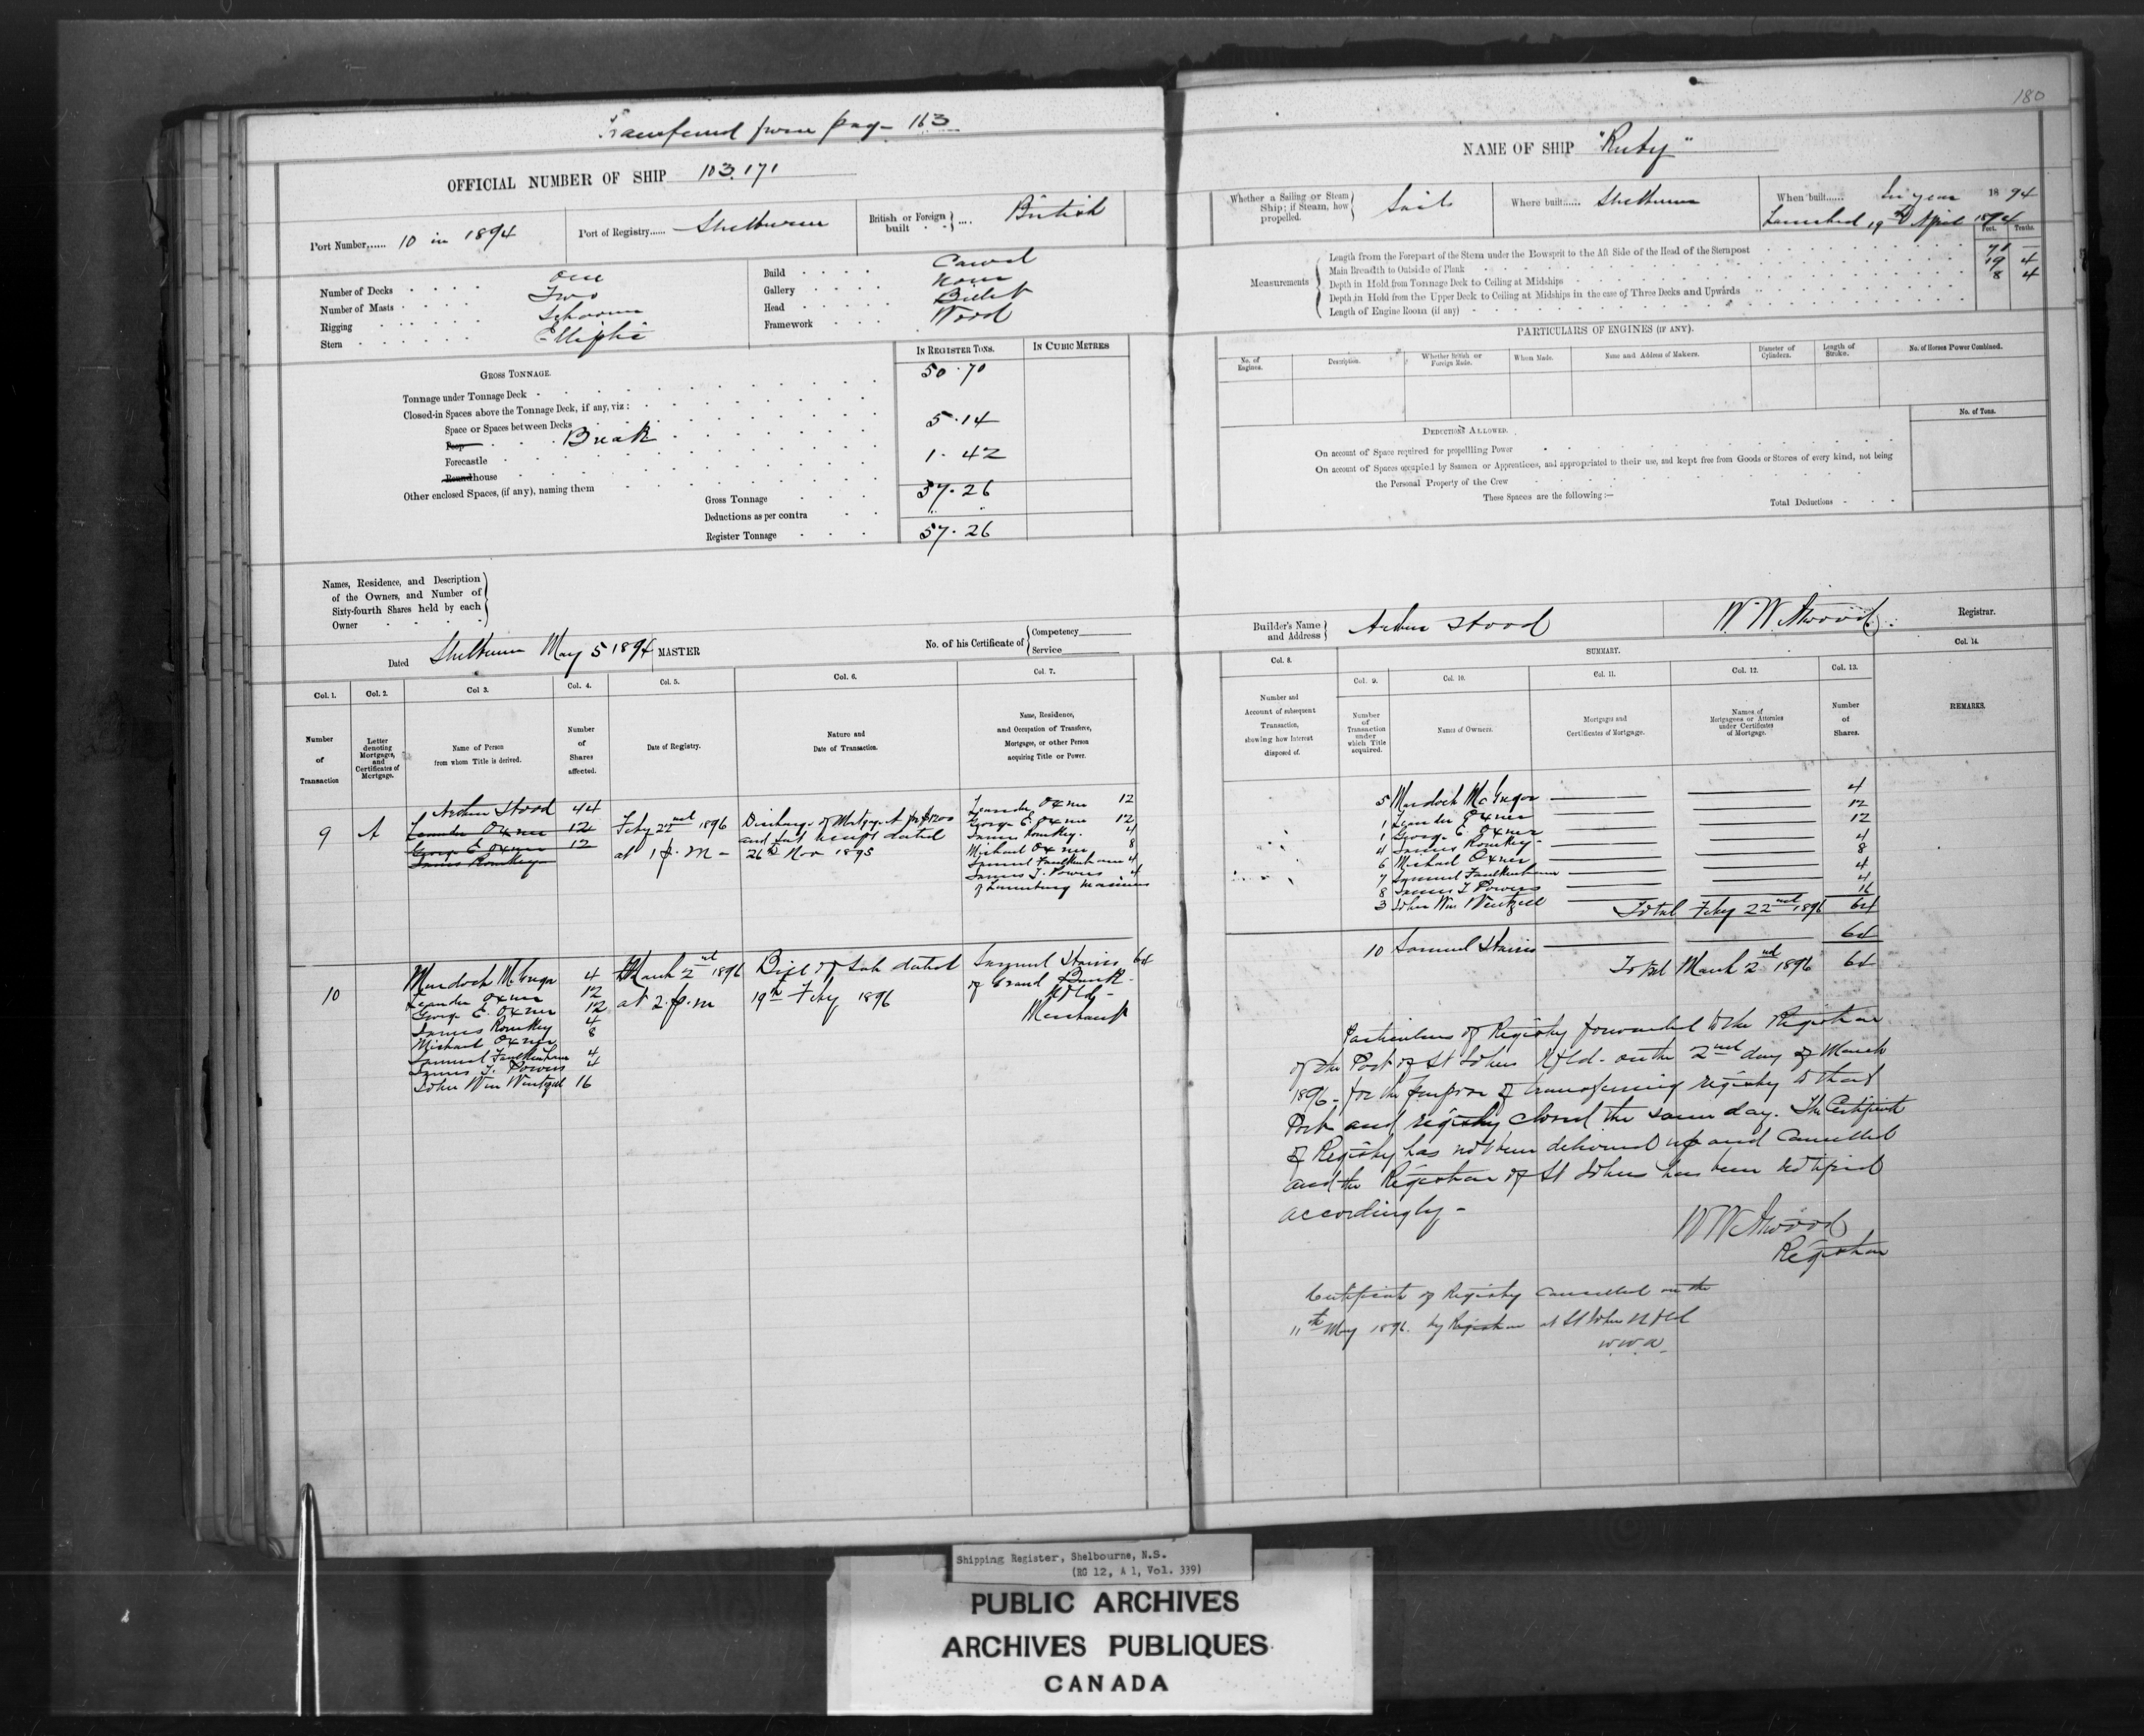 Transferred from page 163
OFFICIAL NUMBER OF SHIP 103.171
Port Number...... 10 in 1894
Port of Registry...... Shelburne
British or Foreign built .... British
Number of Decks One
Number of Masts Two
Rigging Schooner
Stern Elliptic
Build Carvel
Gallery None
Head Billet
Framework Wood
IN REGISTER TONS.
IN CUBIC METRES
GROSS TONNAGE.
Tonnage under Tonnage Deck 50.70
Closed-in Spaces above the Tonnage Deck, if any, viz:
Space or Spaces between Decks
Poop Break 5.14
Forecastle
Roundhouse 1.42
Other enclosed Spaces, (if any), naming them
Gross Tonnage 57.26
Deductions as per contra " "
Register Tonnage 57.26
Names, Residence, and Description
of the Owners, and Number of
Sixty-fourth Shares held by each
Owner
Dated Shelburne May 5 1894 MASTER
No. of his Certificate of Competency
Service
Col. 1. Col. 2. Col 3. Col. 4. Col. 5. Col. 6. Col. 7.
Number of Transaction
Letter denoting Mortgages, and Certificates of Mortgage.
Name of Person from whom Title is derived.
Number of Shares affected.
Date of Registry.
Nature and Date of Transaction.
Name, Residence, and Occupation of Transferee, Mortgagee, or other Person acquiring Title or Power.
9 A
Arthur Hood 44
Leander Oxner 12
George E Oxner 12
James Romkey
Feby 22nd 1896
at 1 p.m -
Discharge of Mortgage A for $1200
and last receipt dated
26th Nov 1895
Leander Oxner 12
George E. Oxner 12
James Romkey. 4
Michael Oxner 8
Samuel Faulkenham 4
James T. Powers 4
of Lunenburg Mariners
10
Murdoch McGregor 4
Leander Oxner 12
George E. Oxner 12
James Romkey 4
Michael Oxner 8
Samuel Faulkenham 4
James T. Powers 4
John Wm Wentzell 16
March 2nd 1896
at 2 p.m
Bill of Sale dated
19th Feby 1896
Samuel Harris 64
of Grand Bank
Nfld -
Merchant
180
NAME OF SHIP "Ruby"
Whether a Sailing or Steam Ship; if Steam, how propelled. Sails
Where built...... Shelburne
When built...... In year 1894
Launched 19th April 1894
Feet. Tenths.
Measurements
Length from the Forepart of the Stem under the Bowsprit to the Aft Side of the Head of the Sternpost 71 —
Main Breadth to Outside of Plank 19 4
Depth in Hold from Tonnage Deck to Ceiling at Midships 8 4
Depth in Hold from the Upper Deck to Ceiling at Midships in the case of Three Decks and Upwards
Length of Engine Room (if any)
PARTICULARS OF ENGINES (IF ANY).
No. of Engines.
Description.
Whether British or Foreign Made.
When Made.
Name and Address of Makers.
Diameter of Cylinders.
Length of Stroke.
No. of Horses Power Combined.
DEDUCTIONS ALLOWED.
No. of Tons.
On account of Space required for propelling Power
On account of Spaces occupied by Seamen or Apprentices, and appropriated to their use, and kept free from Goods or Stores of every kind, not being
the Personal Property of the Crew
These Spaces are the following:—
Total Deductions
Builder's Name and Address Arthur Hood
W. W. Atwood Registrar.
Col. 8. SUMMARY. Col. 14.
Col. 9. Col. 10. Col. 11. Col. 12. Col. 13.
Number and Account of subsequent Transaction, showing how Interest disposed of.
Number of Transaction under which Title acquired.
Names of Owners.
Mortgages and Certificates of Mortgage.
Names of Mortgagees or Attornies under Certificates of Mortgage.
Number of Shares.
REMARKS.
5 Murdoch McGregor 4
1 Leander Oxner 12
1 George E. Oxner 12
4 James Romkey 4
6 Michael Oxner 8
7 Samuel Faulkenham 4
8 James T Powers 4
3 John Wm Wentzell 16
Total Feby 22nd 1896 64
10 Samuel Harris 64
Total March 2nd 1896 64
Particulars of Registry forwarded to the Registrar
of the Port of St Johns Nfld. on the 2nd day of March
1896 - for the purpose of transferring registry to that
Port and registry closed the same day. The Certificate
of Registry has not been delivered up and Cancelled
and the Registrar of St Johns has been notified
accordingly -
W W Atwood
Registrar
Certificate of Registry cancelled on the
11th May 1896. by Registrar at St Johns Nfld
W.W.A.
Shipping Register, Shelbourne, N.S.
(RG 12, A 1, Vol. 339)
PUBLIC ARCHIVES
ARCHIVES PUBLIQUES
CANADA